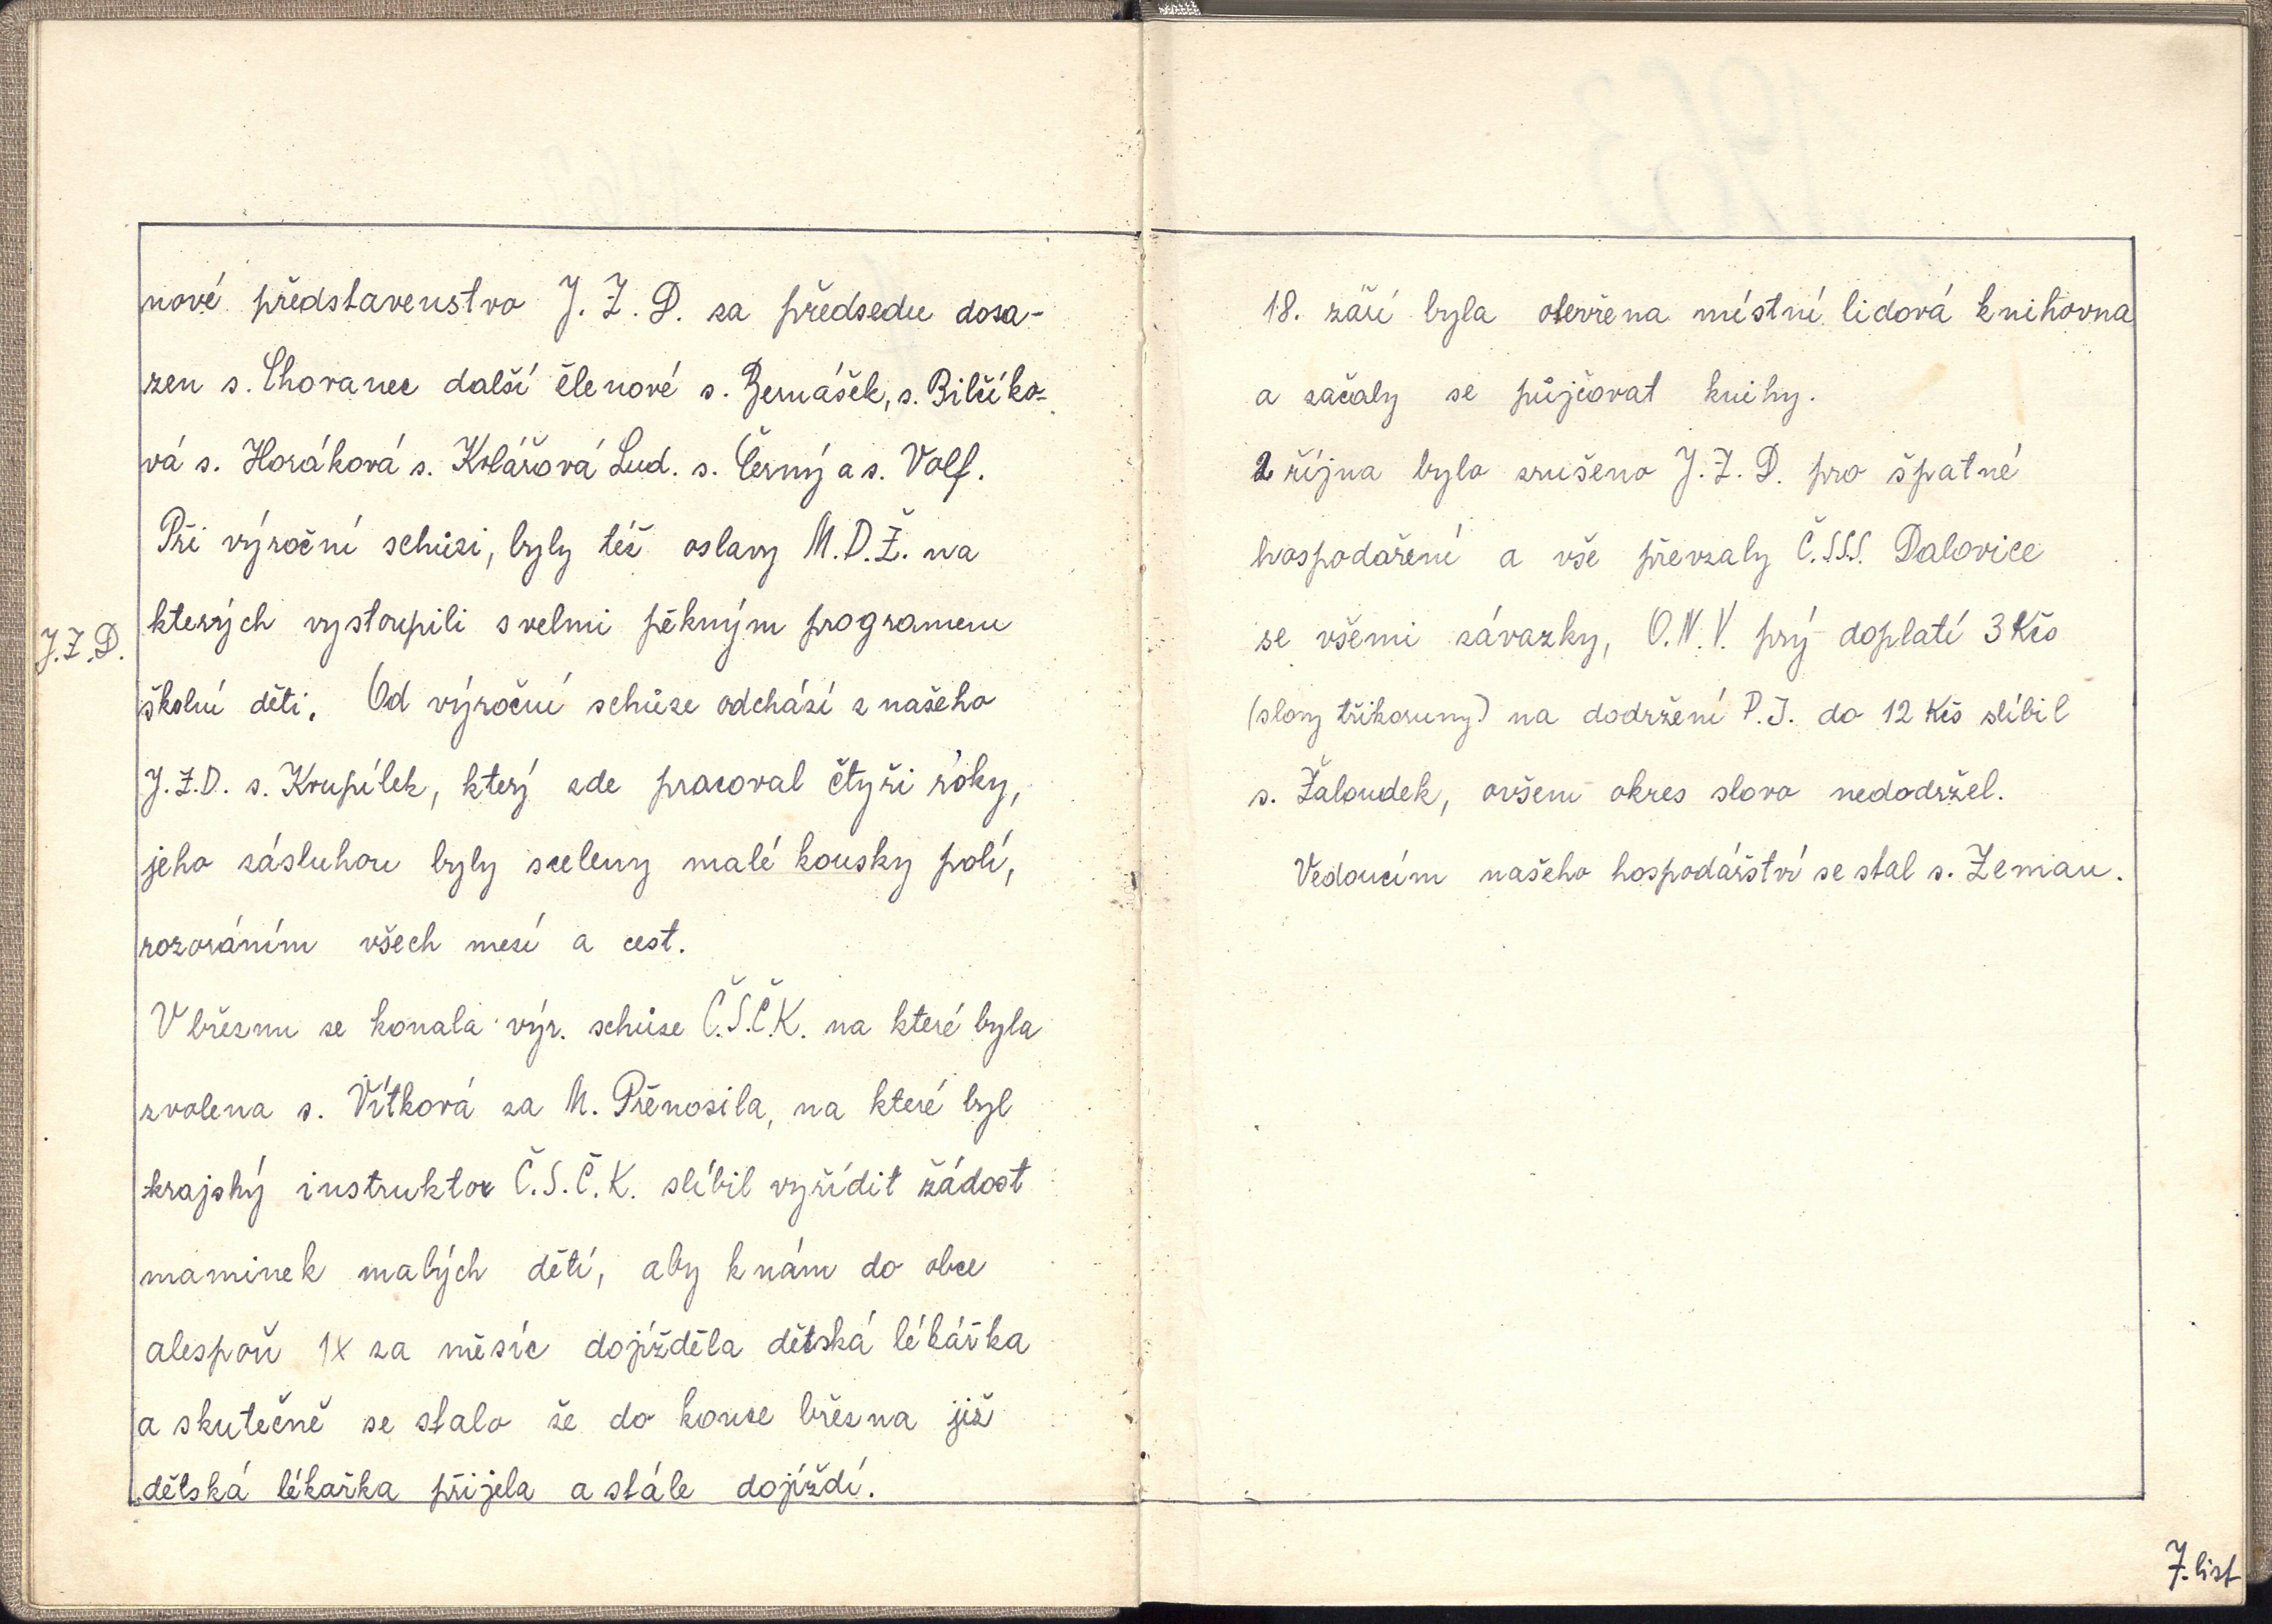 nové představenstvo J.Z.D. za předsedu dosa-
zen s. Chovanec další členové s. Zemášek, s. Bilčíko-
vá s. Horáková s. Kolářová Lud. s. Černý a s. Volf.
Při výroční schůzi, byly též oslavy M.D.Ž. na
kterých vystoupili s velmi pěkným programem
J.Z.D.
školní děti. Od výroční schůze odchází z našeho
J.Z.D. s. Krupílek, který zde pracoval čtyři roky,
jeho zásluhou byly sceleny malé kousky polí,
rozoráním všech mezí a cest.
V březnu se konala výr. schůze Č.S.Č.K. na které byla
zvolena s. Vítková za M. Přenosila, na které byl
krajský instruktor Č.S.Č.K. slíbil vyřídit žádost
maminek malých dětí, aby k nám do obce
alespoň 1x za měsíc dojížděla dětská lékářka
a skutečně se stalo že do konce března již
dětská lékařka přijela a stále dojíždí.
18. září byla otevřena místní lidová knihovna
a začaly se půjčovat knihy.
2 října bylo zrušeno J.Z.D. pro špatné
hospodaření a vše převzaly Č.S.S.S. Dalovice
se všemi závazky, O.N.V. prý doplatí 3 Kčs
(slovy třikoruny) na dodržení P.J. do 12 Kčs slíbil
s. Žaloudek, ovšem okres slovo nedodržel.
Vedoucím našeho hospodářství se stal s. Zeman.
7. list